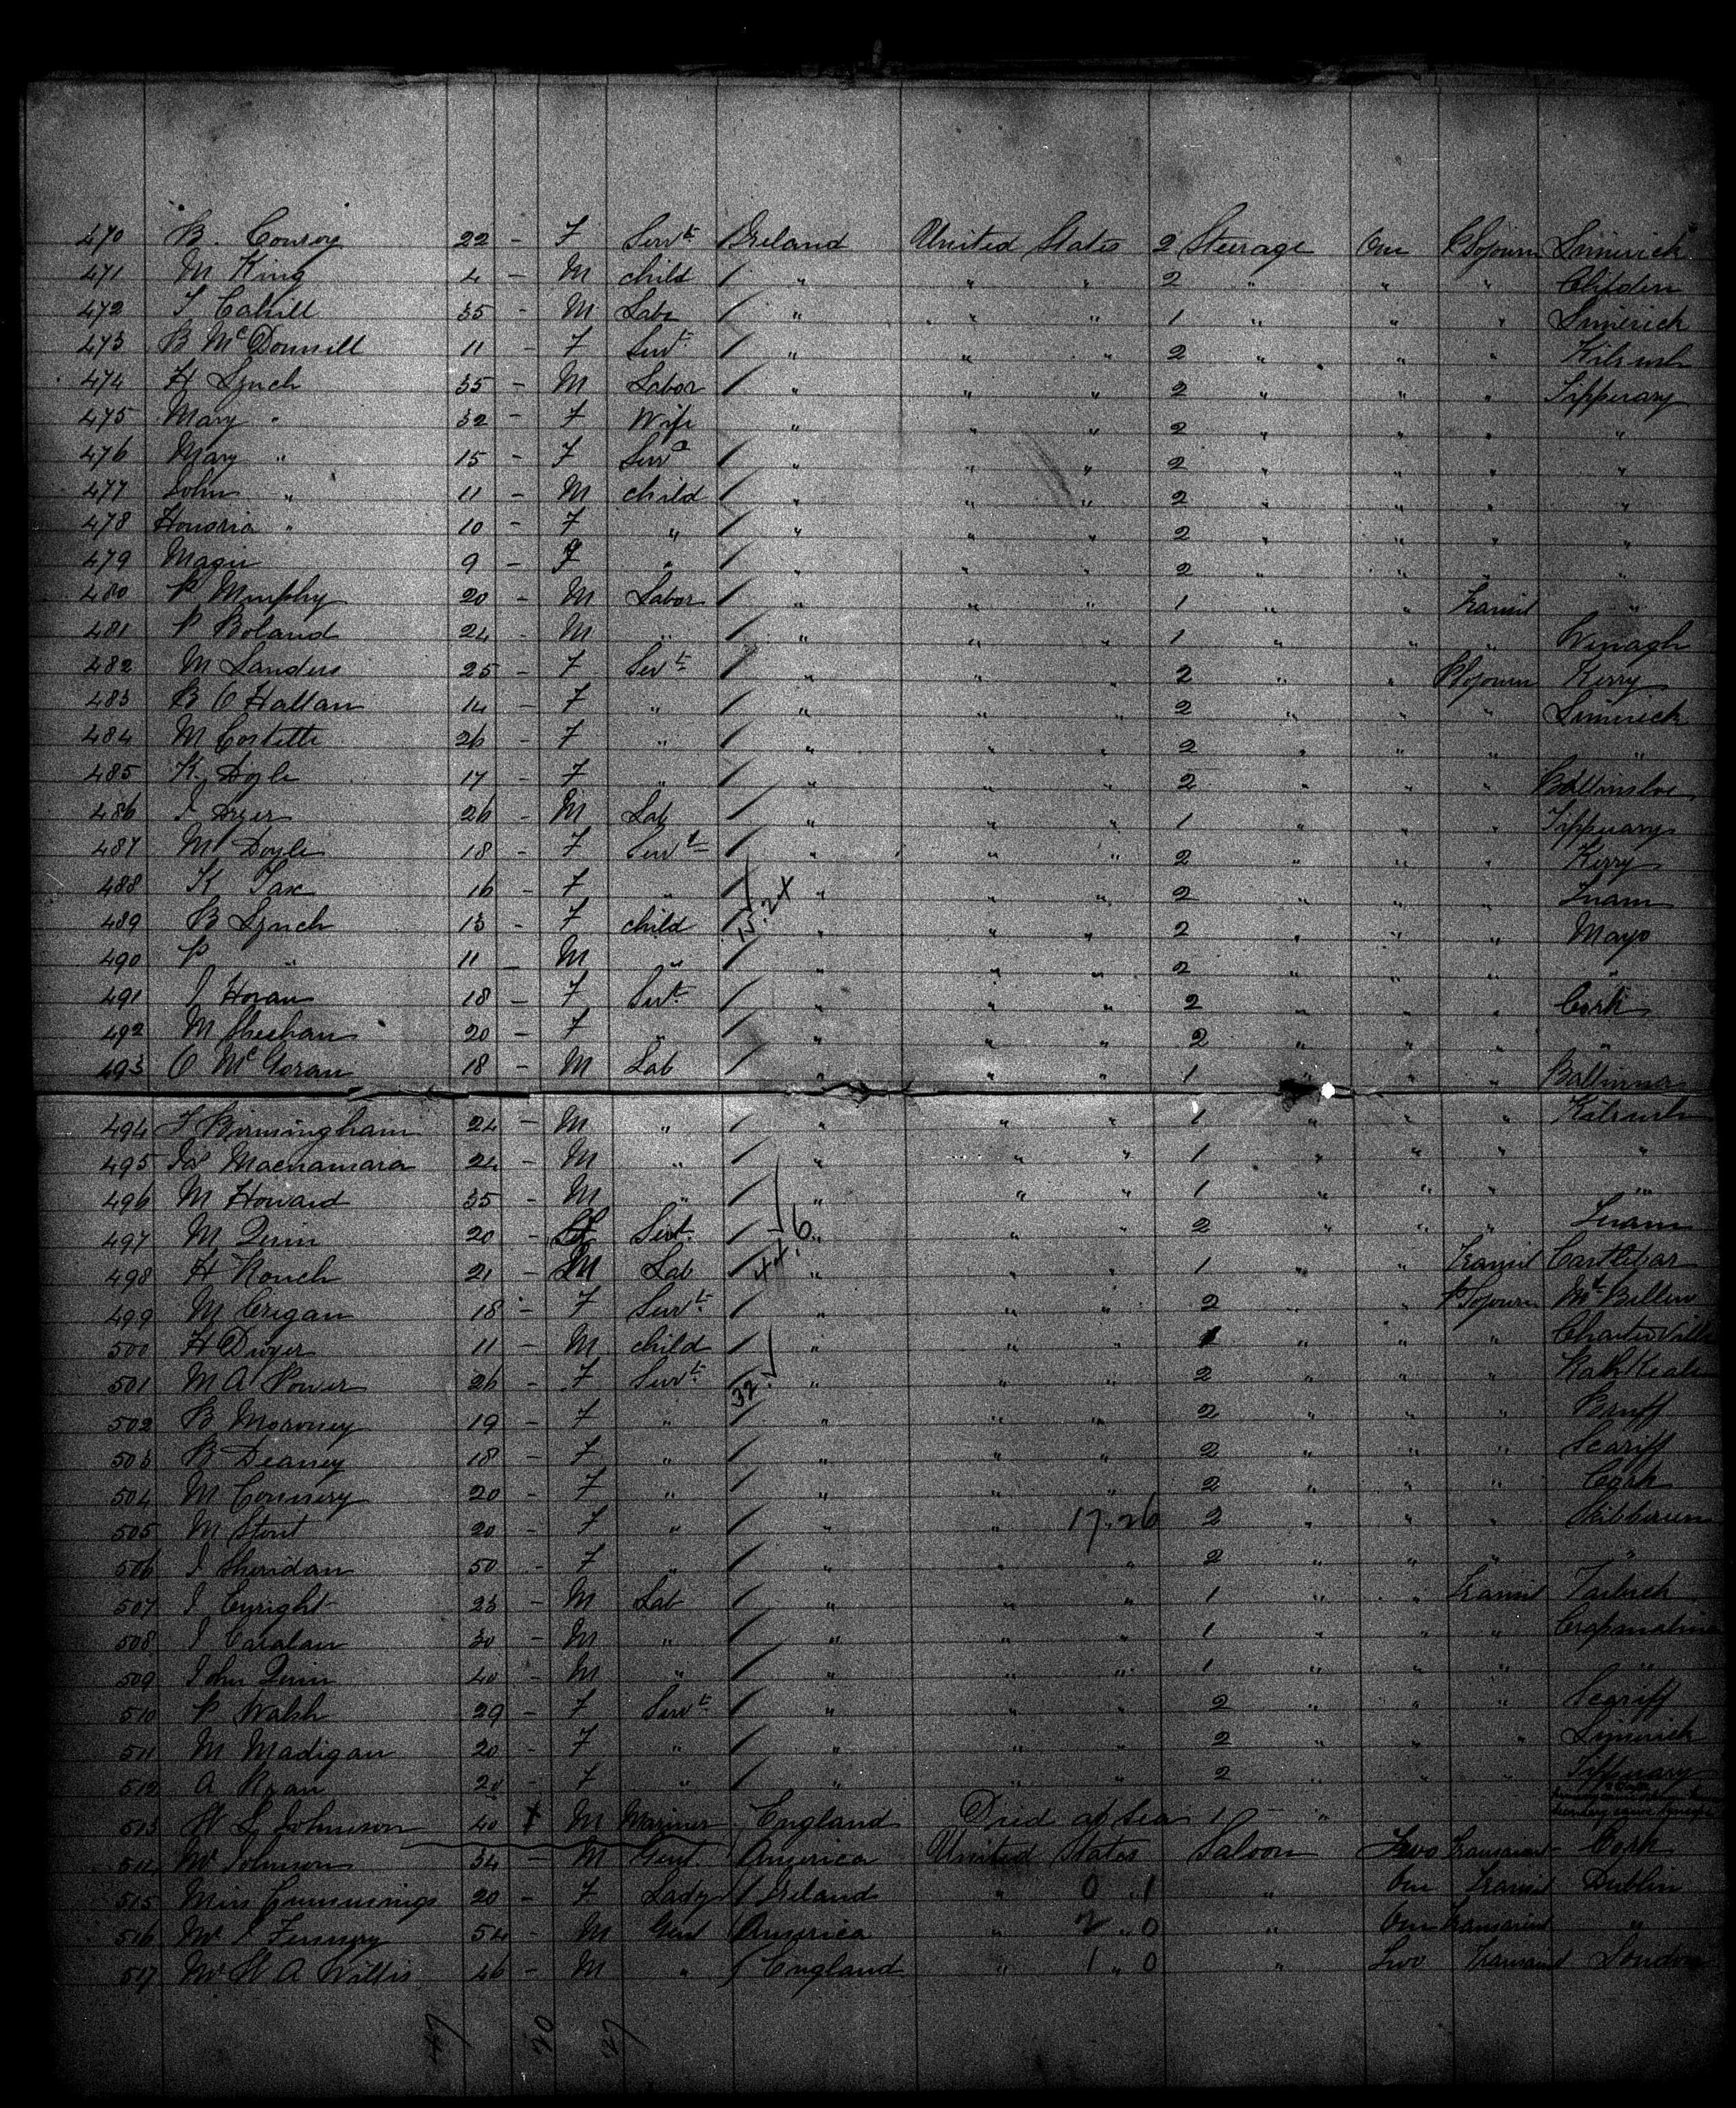 470 B. Conroy 22 - F Servt Ireland United States 2 Steerage One P Sojourn Limerick
471 M King 4 - M child / " " " 2 " " " Clifden
472 T Cahill 35 - M Labr / " " " 1 " " " Limerick
473 B McDonnell 11 - F Servt / " " " 2 " " " Kilrush
474 H Lynch 35 - M Labor / " " " 2 " " " Tipperary
475 Mary " 32 - F Wife " " " 2 " " " "
476 Mary " 15 - F / " " " 2 " " " "
477 John " 11 - M child / " " " 2 " " " "
478 Honoria " 10 - F " / " " " 2 " " " "
479 9 - F " / " " " 2 " " " "
480 P Murphy 20 - M Labor / " " " 1 " " Transit "
481 P Boland 24 - M " / " " " 1 " " "
482 M Landers 25 - F Servt / " " " 2 " " P Sojourn Kerry
483 B O Hallan 14 - F " / " " " 2 " " " Limerick
484 M Costello 26 - F " / " " " 2 " " " "
485 K Doyle 17 - F " / " " " 2 " " " Ballinsloe
486 26 - M Lab / " " " 1 " " " Tipperary
487 M Doyle 18 - F Servt / " " " 2 " " " Kerry
488 K 16 - F " / " " " 2 " " " Tuam
489 B Lynch 13 - F child / " " " 2 " " " Mayo
490 P " 11 - M " / " " " 2 " " " "
491 J Horan 18 - F Servt / " " " 2 " " " Cork
492 M Sheehan 20 - F " / " " " 2 " " " "
493 O McGoran 18 - M Lab / " " " 1 " " " Ballinna
494 T Birmingham 24 - M " / " " " 1 " " " Kilrush
495 Jas Macnamara 24 - M " / " " " 1 " " " "
496 M Howard 35 - M " / " " " 1 " " " "
497 M Quin 20 - F Servt / " " " 2 " " " Tuam
498 H Rouch 21 - M Lab / " " " 1 " " Transit Castlebar
499 M Cregan 18 - F Servt / " " " 2 " " P Sojourn
500 H Dwyer 11 - M child / " " " 1 " " " Charter Ville
501 M A Power 26 - F Servt / " " " 2 " " " Rath Keale
502 B Moroney 19 - F " / " " " 2 " " " Bruff
503 B Deaney 18 - F " / " " " 2 " " " Scariff
504 M Connery 20 - F " / " " " 2 " " " Cork
505 M Stout 20 - F " / " " 17.26 2 " " " Skibbereen
506 J Sheridan 50 - F " / " " " 2 " " " "
507 J Enright 23 - M Lab / " " " 1 " " Transit
508 J 30 - M " / " " " 1 " " "
509 John Quin 40 - M " / " " " 1 " " " "
510 P Walsh 29 - F Servt / " " " 2 " " " Scariff
511 M Madigan 20 - F " / " " " 2 " " " Limerick
512 A Ryan 20 - F " / " " " 2 " " " Tipperary
513 W L Johnson 40 X M Mariner England Died at Sea 1 - "
514 Mr Johnson 34 - M Gent America United States Saloon Two Transient Cork
515 Miss Cummings 20 - F Lady / Ireland " 0 " 1 " One Transit Dublin
516 Mr J 54 - M Gent / America " 2 " 0 " One Transient "
517 Mr H A Willis 46 - M " / England " 1 " 0 " Two Transient London
47 20 27